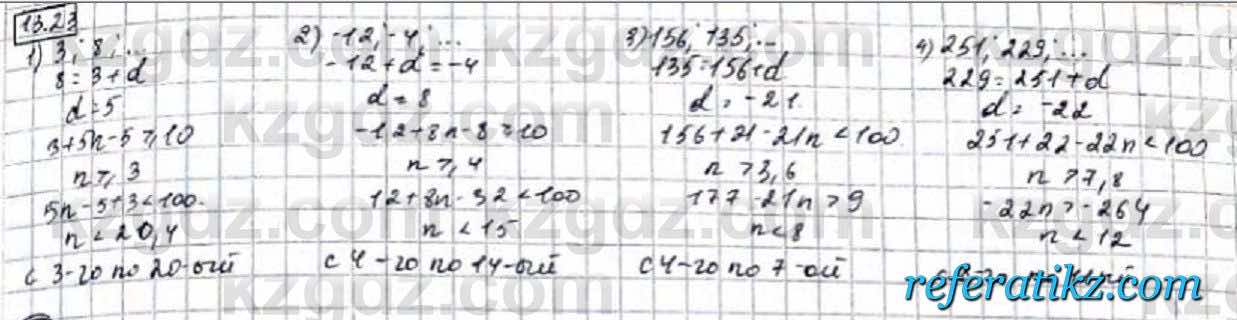 13.23
1) 3; 8; ...
8 = 3 + d
d = 5
3+5n-5 ⩾ 10
n ⩾ 3
5n-5+3<100.
n < 20,4
с 3-го по 20-ый
2) -12; -4; ...
-12 + d = -4
d = 8
-12+8n-8 ⩾ 10
n ⩾ 4
12+8n-32 < 100
n < 15
с 4-го по 14-ый
3) 156; 135; ...
135 = 156+d
d = -21.
156+21-21n < 100.
n > 3,6
177-21n > 9
n < 8
с 4-го по 7-ой
4) 251; 229; ...
229 = 251 + d
d = -22
251+22-22n < 100
n > 7,8
-22n > -264
n < 12
referatikz.com
kzgdz.com